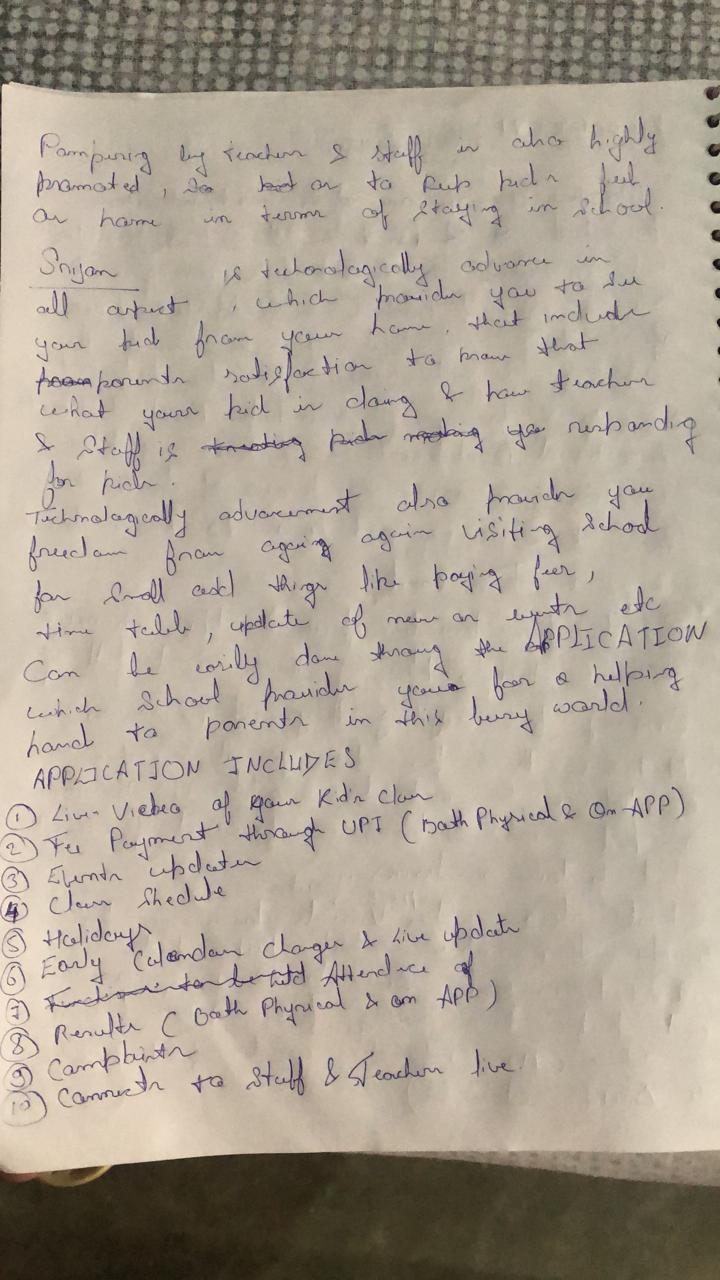 Pampering by teachers & staff is also highly
promoted, so as to keep kids feel
as home in terms of staying in school.
Srijan is technologically advance in
all aspect, which provides you to see
your kid from your home, that include
parents satisfaction to know that
what your kid is doing & how teachers
& Staff is responding
for kids.
Technologically advancement also provides you
freedom from again again visiting school
for small add things like paying fees,
time table, update of new or events etc
Can be easily done throug the APPLICATION
which School provides your for a helping
hand to parents in this busy world.
APPLICATION INCLUDES
① Live Video of your Kid's Class
② Fee Payment through UPI (Both Physical & On-APP)
③ Events updates
④ Class Shedule
⑤ Holidays
⑥ Early Calendar changes & Live update
⑦ Attendice of
⑧ Results (Both Physical & on APP)
⑨ Complaints
⑩ Connects to Staff & Teachers live.